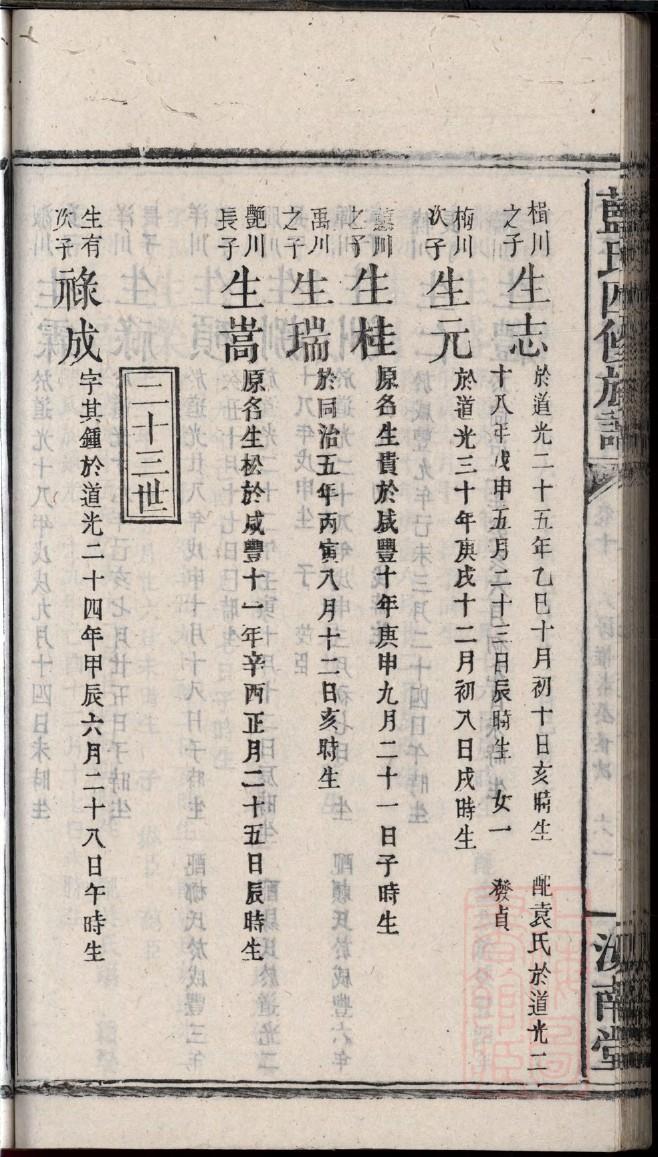 藍氏四修族譜
汝南堂
楫川之子
生志
於道光二十五年乙巳十月初十日亥時生 配袁氏於道光二
十八年戊申五月二十三日辰時生 女一 發貞
梅川次子
生元
於道光三十年庚戌十二月初八日戌時生
之子
生桂
原名生貴於咸豐十年庚申九月二十一日子時生
禹川之子
生瑞
於同治五年丙寅八月十二日亥時生
艷川長子
生嵩
原名生松於咸豐十一年辛酉正月二十五日辰時生
二十三世
生有次子
祿成
字其鍾於道光二十四年甲辰六月二十八日午時生